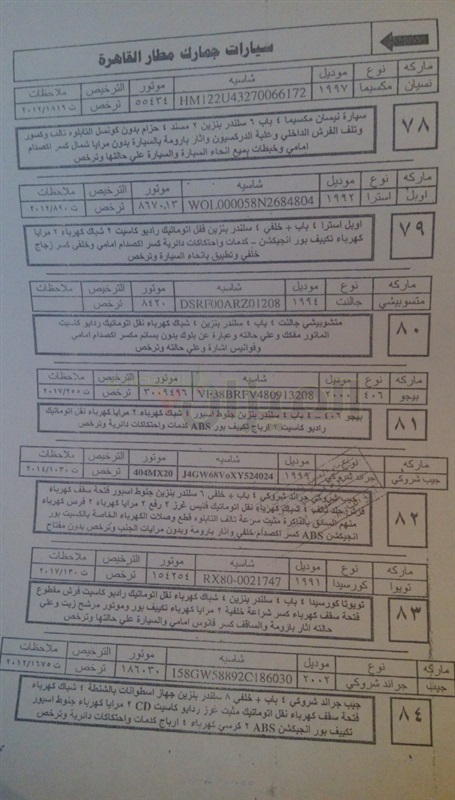 سيارات جمارك مطار القاهرة
ماركه نوع موديل شاسيه موتور الترخيص ملاحظات
نسيان مكسيما ١٩٩٧ HM122U43270066172 ٥٥٤٣٤ ترخص ت ٢٠١٢/١٨١٩
٧٨
سيارة نيسان مكسيما ٤ باب ٦ سلندر بنزين ٢ مسند ٤ حزام بدون كونسل التابلوه تالف وكسور
وتلف الفرش الداخلي وعلبة الدركسيون واثار بارومة بالسيارة بدون مرايا شمال كسر اكصدام
امامي وخبطات بجميع انحاء السيارة والسيارة علي حالتها وترخص
ماركه نوع موديل شاسيه موتور الترخيص ملاحظات
اوبل استرا ١٩٩٢ WOL000058N2684804 ٨٦٧٠١٣ ترخص ت ٢٠١٢/٨٩٠
٧٩
اوبل استرا ٤ باب + خلفي ٤ سلندر بنزين قفل اتوماتيك راديو كاسيت ٢ شباك كهرباء ٢ مرايا
كهرباء تكييف بور انجيكشن - كدمات واحتكاكات دائرية كسر اكصدام امامي وخلفي كسر زجاج
خلفي وتطبيق بانحاء السيارة وترخص
ماركه نوع موديل شاسيه موتور الترخيص ملاحظات
متسوبيشي جالنت ١٩٩٤ DSRF00ARZ01208 ٨٤٢٠ ترخص
٨٠
متشوبيشي جالنت ٤ باب ٤ سلندر بنزين ٤ شباك كهرباء نقل اتوماتيك راديو كاسيت
الماتور مفكك وعلي حالته وعبارة عن بلوك بدون بساتم مكسر اكصدام امامي
وفوانيس اشارة وعلي حالته وترخص
ماركه نوع موديل شاسيه موتور الترخيص ملاحظات
بيجو ٤٠٦ ٢٠٠٠ VF38BRFV480913208 ٣٠٠٦٤٩٦ ترخص
٨١
بيجو ٤٠٦ - ٤ باب ٤ سلندر بنزين جنوط اسبور ٤ شباك كهرباء ٢ مرايا كهرباء نقل اتوماتيك
راديو كاسيت ٢ ارباج تكييف بور ABS كدمات واحتكاكات دائرية وترخص
ماركه نوع موديل شاسيه موتور الترخيص ملاحظات
جيب شروكي جراند شروكي ١٩٩٩ 404MX20 ترخص
٨٢
جيب شروكي جراند شروكي ٤ باب + خلفي ٦ سلندر بنزين جنوط اسبور فتحة سقف كهرباء
شباك كهرباء نقل اتوماتيك فنيس غرز ٢ رفع ٢ مرايا كهرباء ٢ فرس كهرباء
السائق بالذاكرة مثبت سرعة تالف التابلوه قطع وصلات الكهرباء الخاصة بالكاسيت بور
انجيكشن ABS كسر اكصدام خلفي واثار بارومة وبدون مرايات الجنب وترخص بدون مفتاح
ماركه نوع موديل شاسيه موتور الترخيص ملاحظات
تويوا كورسيدا ١٩٩١ RX80-0021747 ١٥٤٢٥٤ ترخص ت ٢٠١٧/١٣٠
٨٣
تويوتا كورسيدا ٤ باب ٤ سلندر بنزين ٤ شباك كهرباء نقل اتوماتيك راديو كاسيت فرش مقطوع
فتحة سقف كهرباء كسر شراعة خلفية ٢ مرايا كهرباء تكييف بور وموتور مرشح زيت وعلي
حالته اثار بارومة والساقف كسر فانوس امامي والسيارة علي حالتها وترخص
ماركه نوع موديل شاسيه موتور الترخيص ملاحظات
جيب جراند شروكي ٢٠٠٢ 158GW58892C186030 ١٨٦٠٣٠ ترخص ت ٢٠١٢/١٦٧٥
٨٤
جيب جراند شروكي ٤ باب + خلفي ٨ سلندر بنزين جهاز اسطوانات بالشنطة ٤ شباك كهرباء
فتحة سقف كهرباء نقل اتوماتيك مثبت غرز راديو كاسيت CD ٢ مرايا كهرباء جنوط اسبور
تكييف بور انجيكشن ABS ٢ كرسي كهرباء ٤ ارباج كدمات واحتكاكات دائرية وترخص